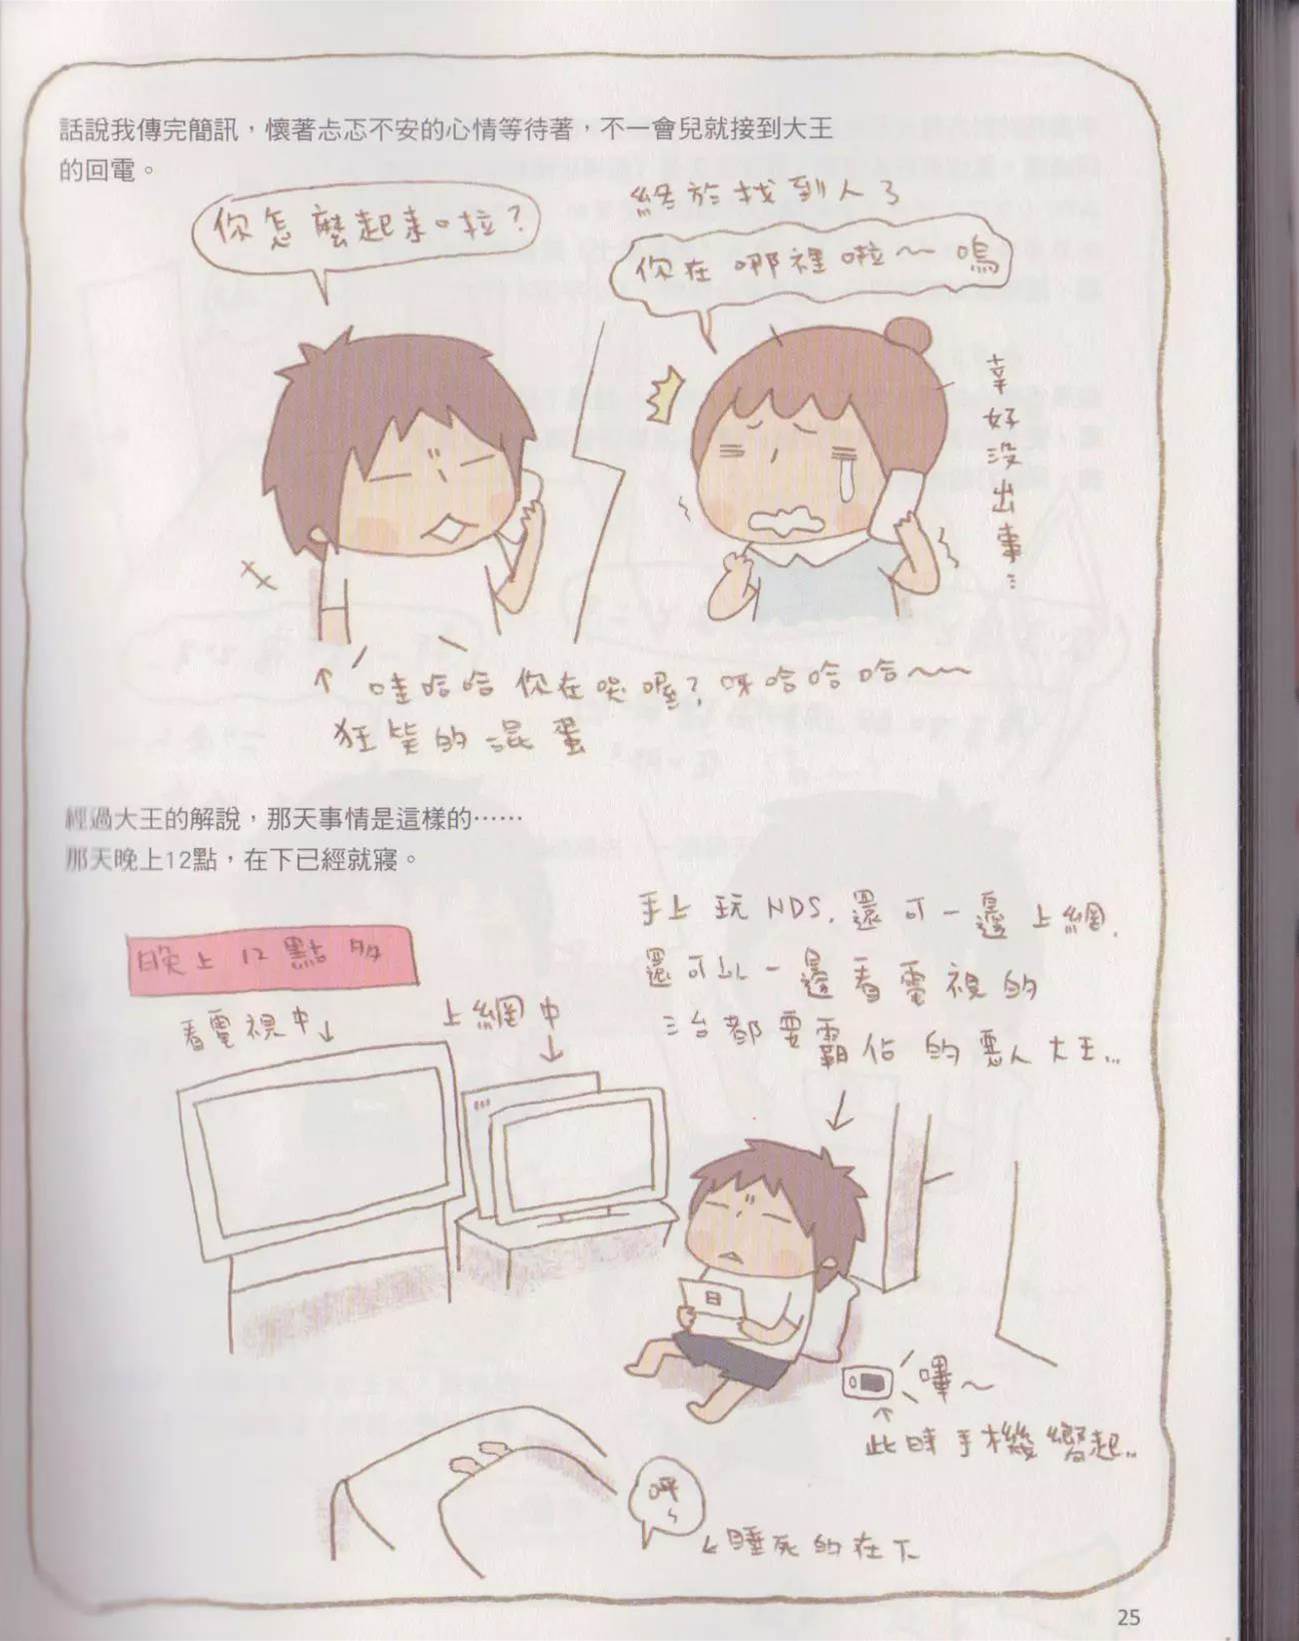 話說我傳完簡訊，懷著忐忑不安的心情等待著，不一會兒就接到大王
的回電。
你怎麼起來啦？
終於找到人了
你在哪裡啦～嗚
幸好沒出事…
哇哈哈你在哭喔？呀哈哈哈～
狂笑的混蛋
經過大王的解說，那天事情是這樣的……
那天晚上12點，在下已經就寢。
晚上12點多
看電視中
上網中
手上玩NDS，還可一邊上網，
還可以一邊看電視的
三台都要霸佔的惡人大王…
嗶～
此時手機響起…
呼～
睡死的在下
25